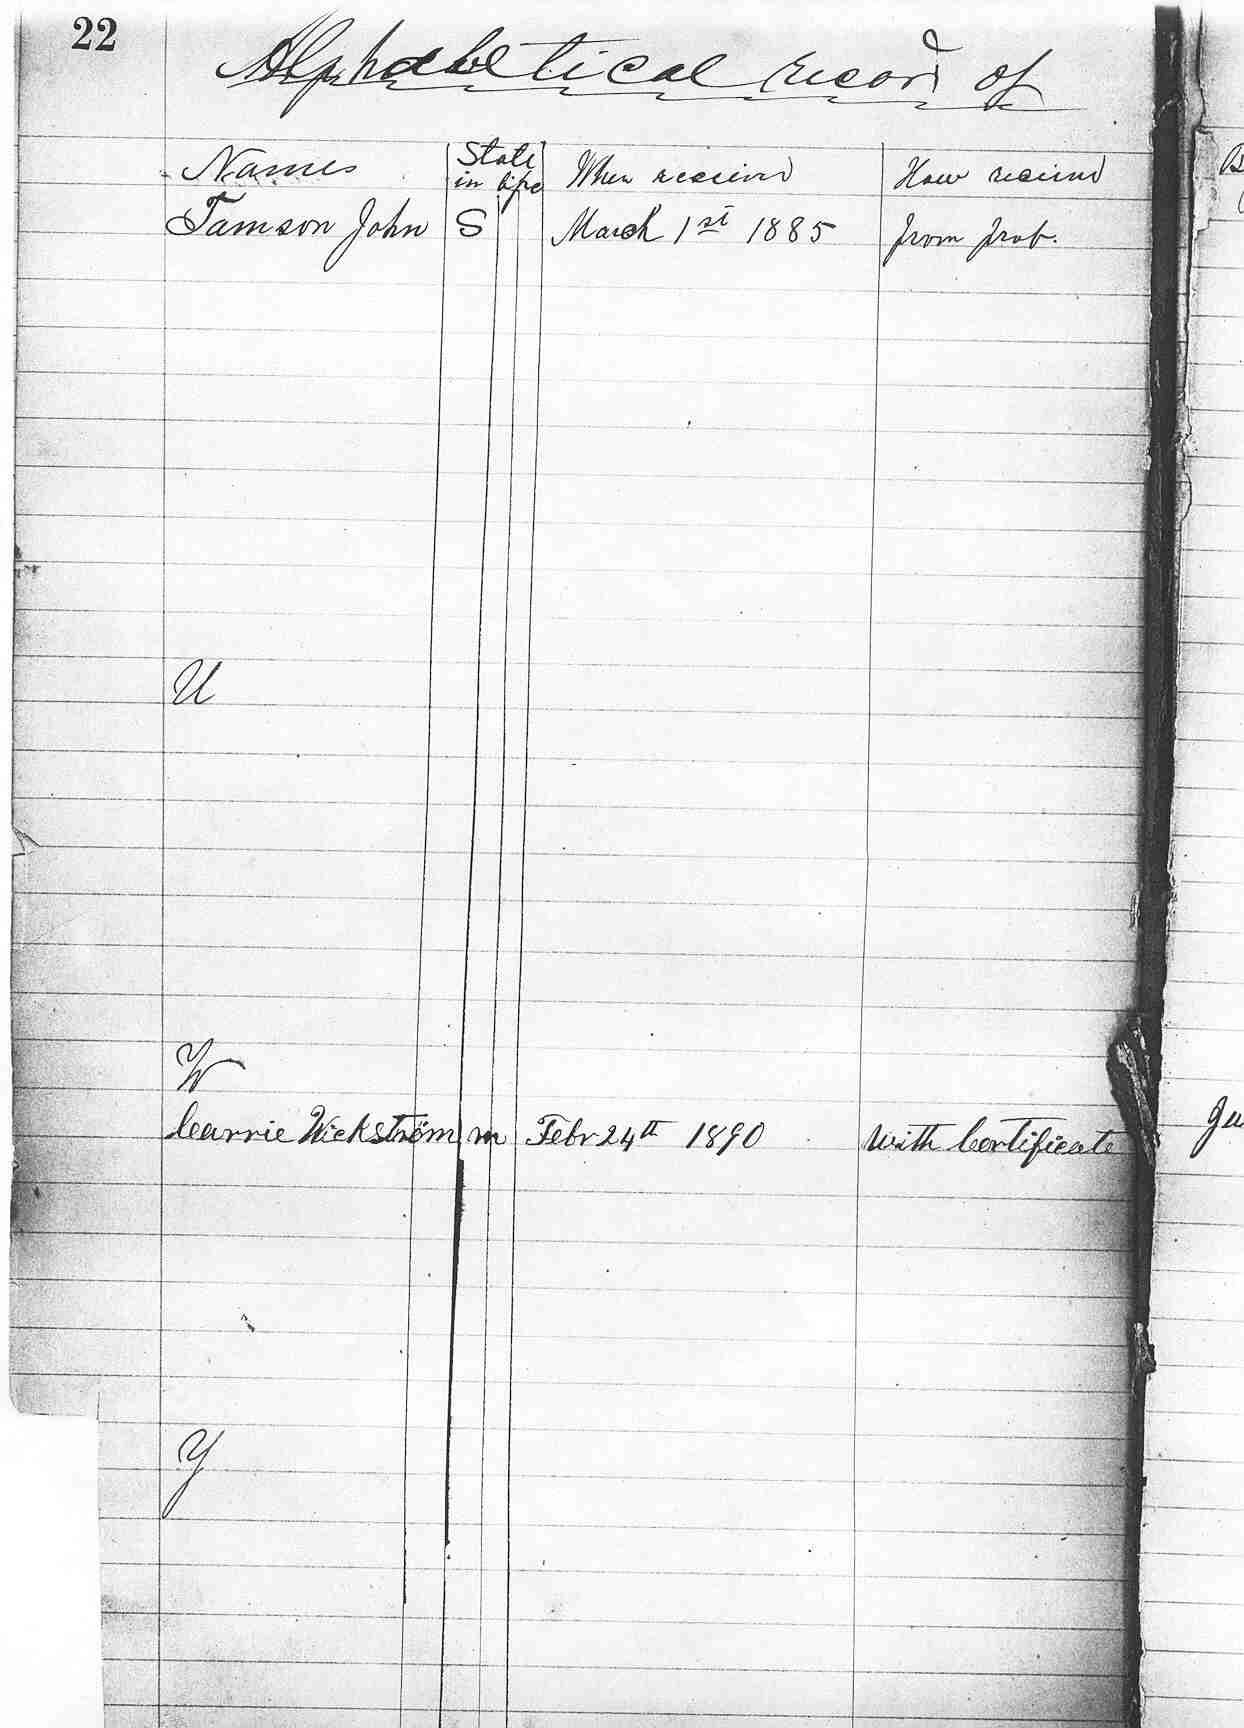 22
Alphabetical record of
Names State in life When received How received
Tamson John S March 1st 1885 from prob.
U
W
Carrie Wickström m Febr 24th 1890 with Certificate
Y